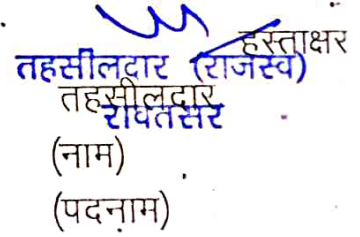 हस्ताक्षर
तहसीलदार (राजस्व)
तहसीलदार
रावतसर
(नाम)
(पदनाम)